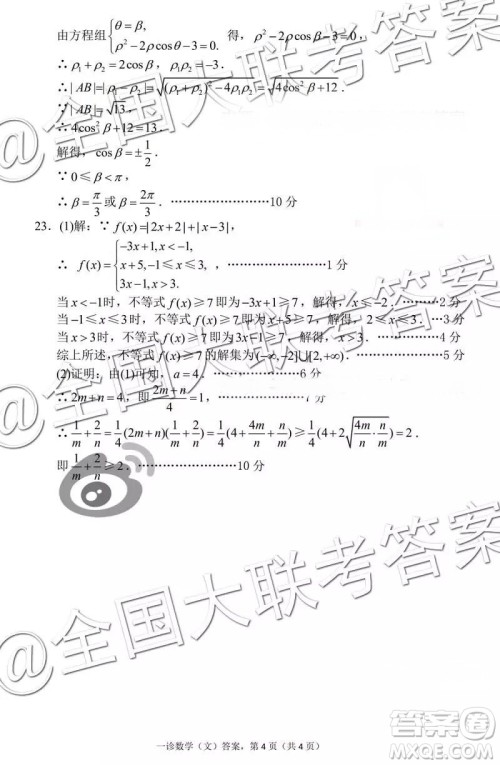 由方程组{θ=β, ρ²-2ρcosθ-3=0. 得，ρ²-2ρcosβ-3=0，
∴ρ₁+ρ₂=2cosβ，ρ₁ρ₂=-3.
∴|AB|=|ρ₁-ρ₂|=√((ρ₁+ρ₂)²-4ρ₁ρ₂)=√(4cos²β+12).
∵|AB|=√13，
∴4cos²β+12=13.
解得，cosβ=±1/2.
∵0≤β<π，
∴β=π/3或β=2π/3.………………………10分
23．(1)解：∵f(x)=|2x+2|+|x-3|，
∴f(x)={-3x+1,x<-1, x+5,-1≤x≤3, 3x-1,x>3. ，……………………1分
当x<-1时，不等式f(x)≥7即为-3x+1≥7，解得，x≤-2.………2分
当-1≤x≤3时，不等式f(x)≥7即为x+5≥7，解得，2≤x≤3.……3分
当x>3时，不等式f(x)≥7即为3x-1≥7，解得，x>3.……………4分
综上所述，不等式f(x)≥7的解集为(-∞,-2]∪[2,+∞).…………5分
(2)证明：由(1)可知，a=4，……………………6分
∴2m+n=4，即(2m+n)/4=1，
∴1/m+2/n=1/4(2m+n)(1/m+2/n)=1/4(4+4m/n+n/m)≥1/4(4+2√(4m/n·n/m))=2.
即1/m+2/n≥2.……………………10分
@全国大联考答案
@全国大联考答案
一诊数学（文）答案，第4页（共4页）
答案圈
MXQE.COM